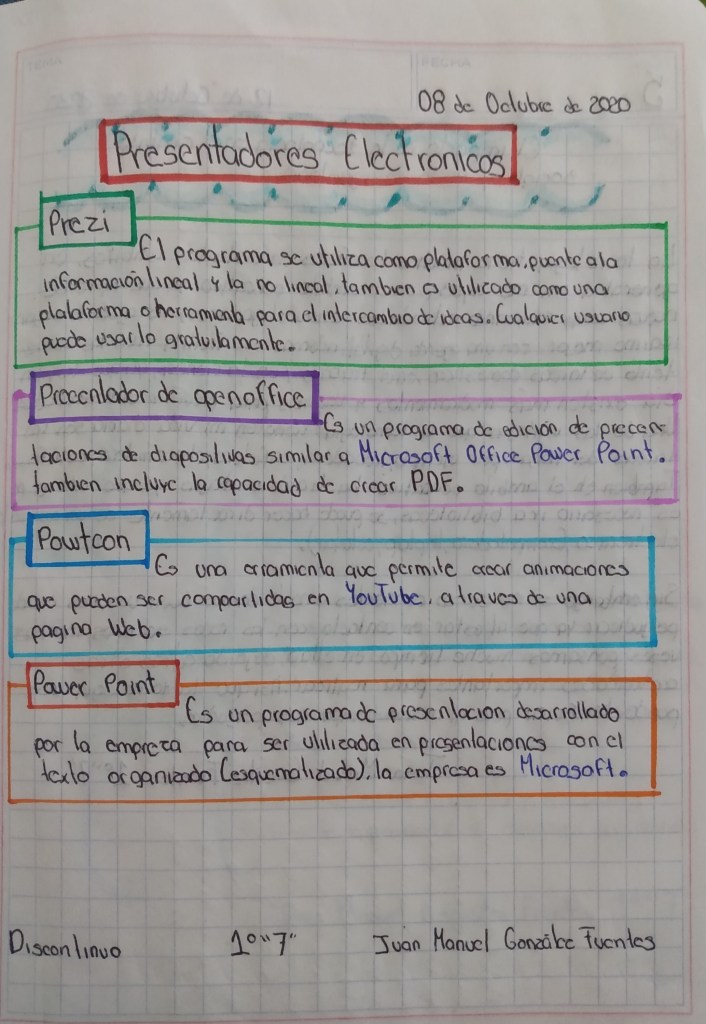 08 de Octubre de 2020
Presentadores Electronicos
Prezi
El programa se utiliza como plataforma, puente a la
información lineal y la no lineal, tambien es utilicado como una
plataforma o herramienta para el intercambio de ideas. Cualquier usuario
puede usarlo gratuitamente.
Precentador de openoffice
Es un programa de edición de precen-
taciones de diapositivas similar a Microsoft Office Power Point.
tambien incluye la capacidad de crear PDF.
Powtoon
Es una erramienta que permite crear animaciones
que pueden ser compartidas en YouTube, a traves de una
pagina Web.
Power Point
Es un programa de presentacion desarrollado
por la empreza para ser utilizada en presentaciones con el
texto organizado (esquematizado), la empresa es Microsoft.
Discontinuo 1º "7" Juan Manuel González Fuentes